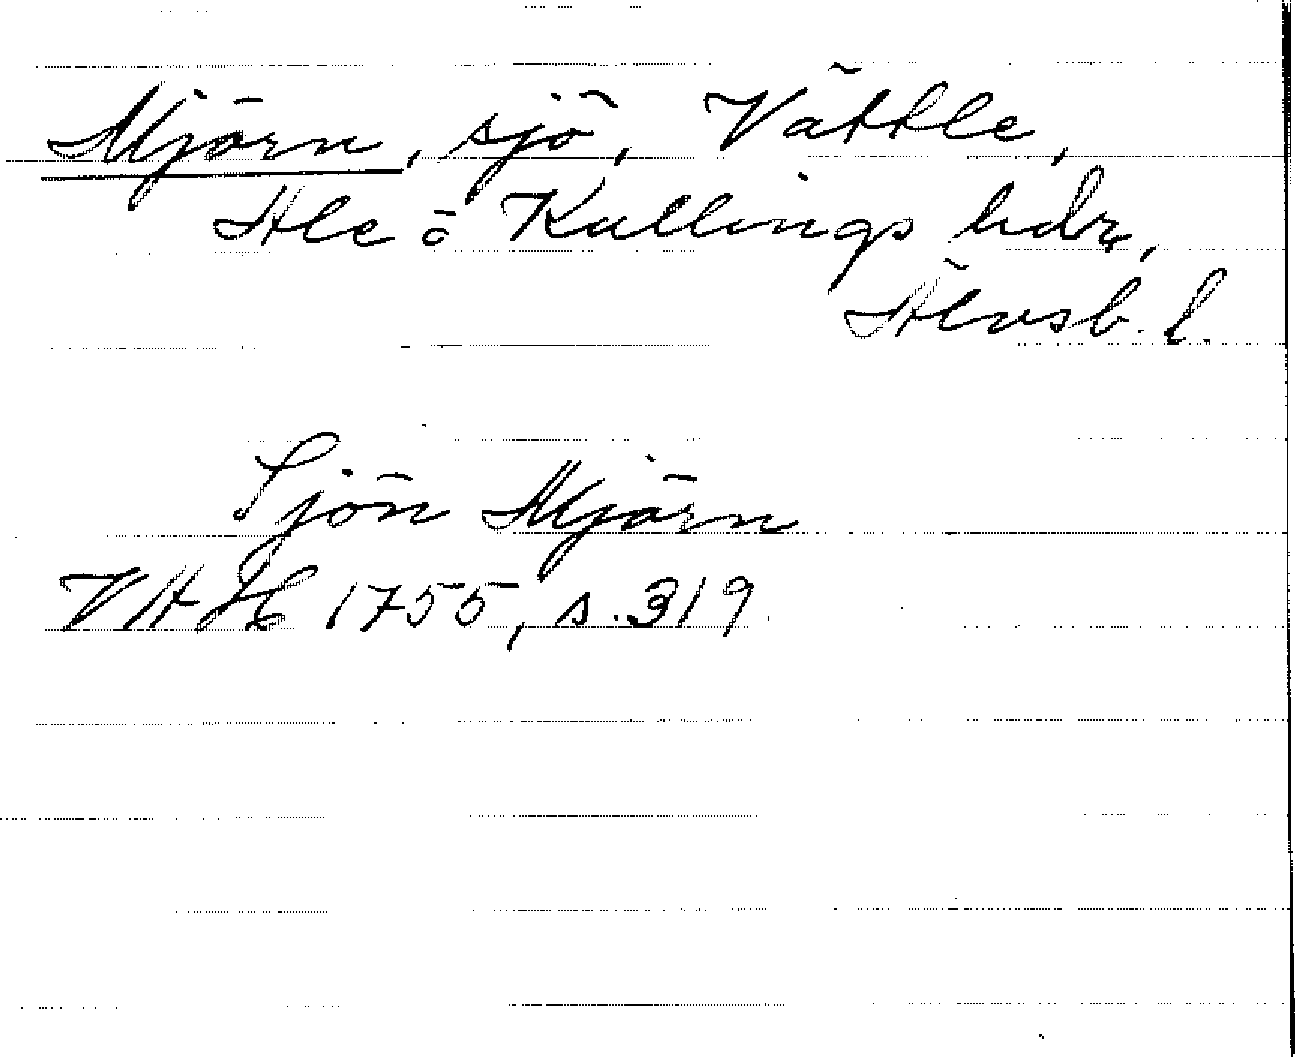 Mjörn, sjö, Vättle,
Ale o Kullings hdr,
Älvsb. l.
Sjön Mjörn
VAH 1755, s. 319